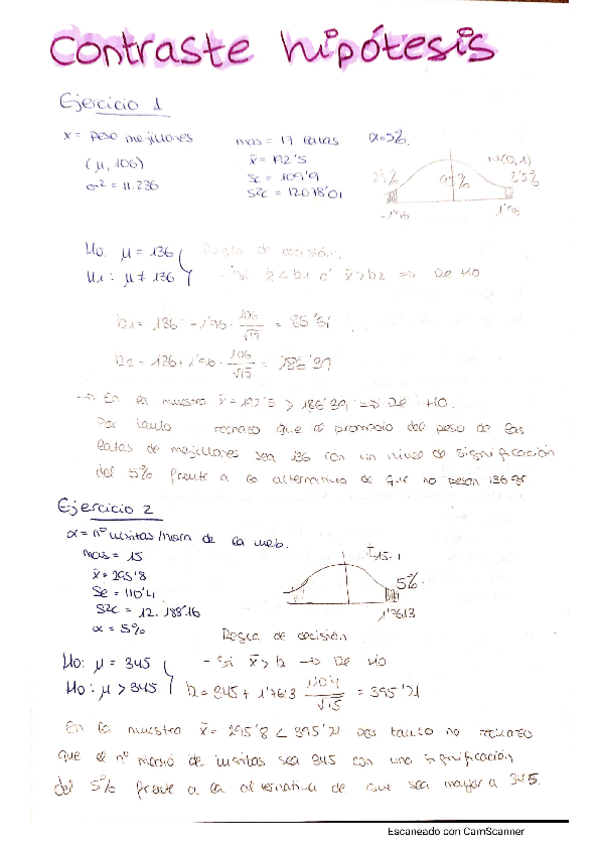 Contraste hipótesis
Ejercicio 1
x = peso mejillones
mas = 17 latas
α=5%
(μ, 106)
x̄ = 192'5
N(0,1)
σ² = 11.236
Sc = 109'9
2'5%
95%
2'5%
S²c = 12078'01
-1'96
1'96
H0: μ = 136
Regla de decisión.
H1: μ ≠ 136
- Si x̄ < b1 ó x̄ > b2 => Re H0
b1 = 136 - 1'96 · 106/√17 = 85'61
b2 = 136 + 1'96 · 106/√17 = 186'39
-> En la muestra x̄ = 192'5 > 186'39 => Re H0.
Por tanto rechazo que el promedio del peso de las
latas de mejillones sea 136 con un nivel de significación
del 5% frente a la alternativa de que no pesen 136 gr.
Ejercicio 2
x = nº visitas/hora de la web.
mas = 15
T15-1
x̄ = 295'8
5%
Sc = 110'4
S²c = 12.188'16
1'7613
α = 5%
Regla de decisión
H0: μ = 345
- Si x̄ > b -> Re H0
H0: μ > 345
b = 345 + 1'7613 110'4/√15 = 395'21
En la muestra x̄ = 295'8 < 395'21 por tanto no rechazo
que el nº medio de visitas sea 345 con una significación
del 5% frente a la alternativa de que sea mayor a 345.
Escaneado con CamScanner